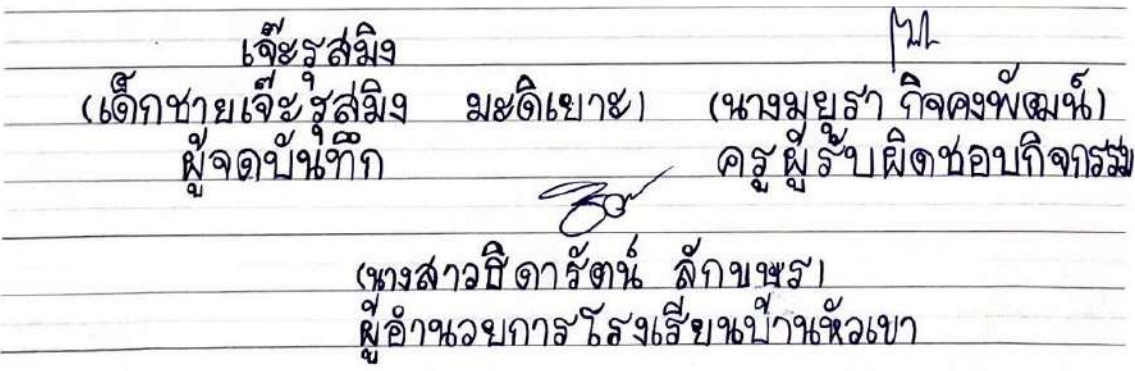 เจ๊ะรุสมิง
(เด็กชายเจ๊ะรุสมิง มะดิเยาะ) (นางมยุรา กิจคงพัฒน์)
ผู้จดบันทึก ครูผู้รับผิดชอบกิจกรรม
(นางสาวธิดารัตน์ ลักขษร)
ผู้อำนวยการโรงเรียนบ้านหัวเขา